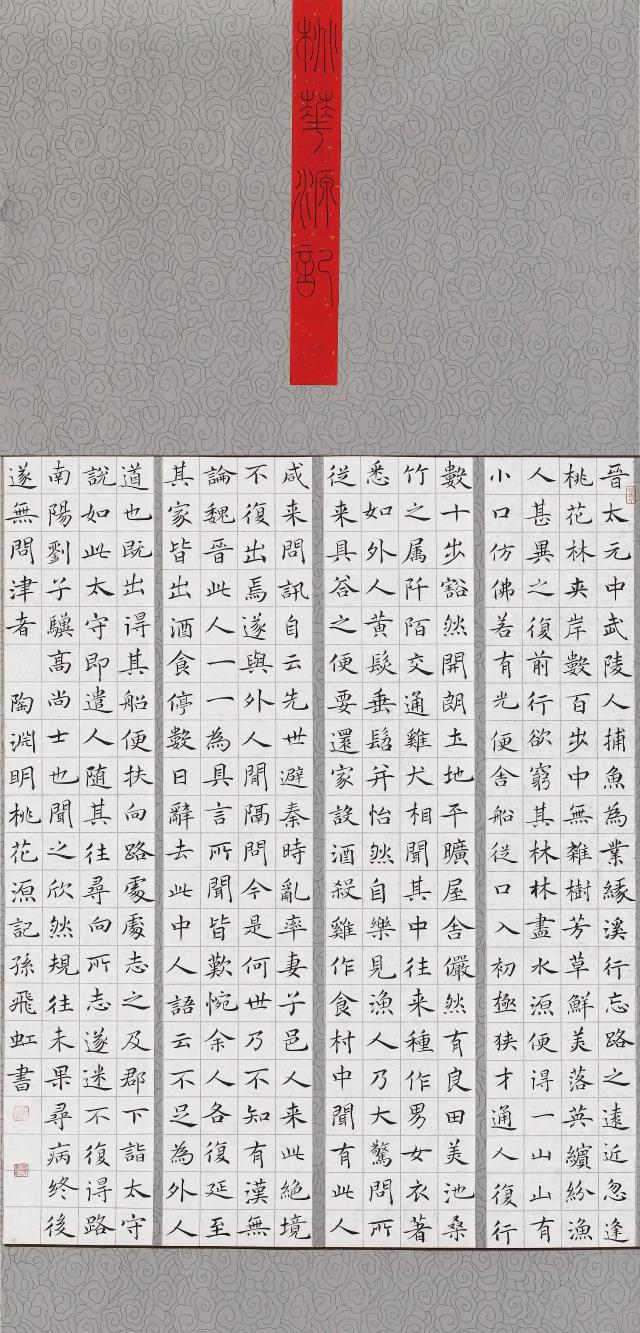 桃華源記
晉太元中武陵人捕魚為業緣溪行忘路之遠近忽逢
桃花林夾岸數百步中無雜樹芳草鮮美落英繽紛漁
人甚異之復前行欲窮其林林盡水源便得一山山有
小口仿佛若有光便舍船從口入初極狭才通人復行
數十步豁然開朗土地平曠屋舍儼然有良田美池桑
竹之属阡陌交通雞犬相聞其中往来種作男女衣著
悉如外人黄髮垂髫并怡然自樂見漁人乃大驚問所
從来具答之便要還家設酒殺雞作食村中聞有此人
咸来問訊自云先世避秦時亂率妻子邑人来此絶境
不復出焉遂與外人間隔問今是何世乃不知有漢無
論魏晉此人一一為具言所聞皆歎惋余人各復延至
其家皆出酒食停數日辭去此中人語云不足為外人
道也既出得其船便扶向路處處志之及郡下詣太守
說如此太守即遣人随其往尋向所志遂迷不復得路
南陽劉子驥高尚士也聞之欣然規往未果尋病終後
遂無問津者 陶淵明桃花源記孫飛虹書